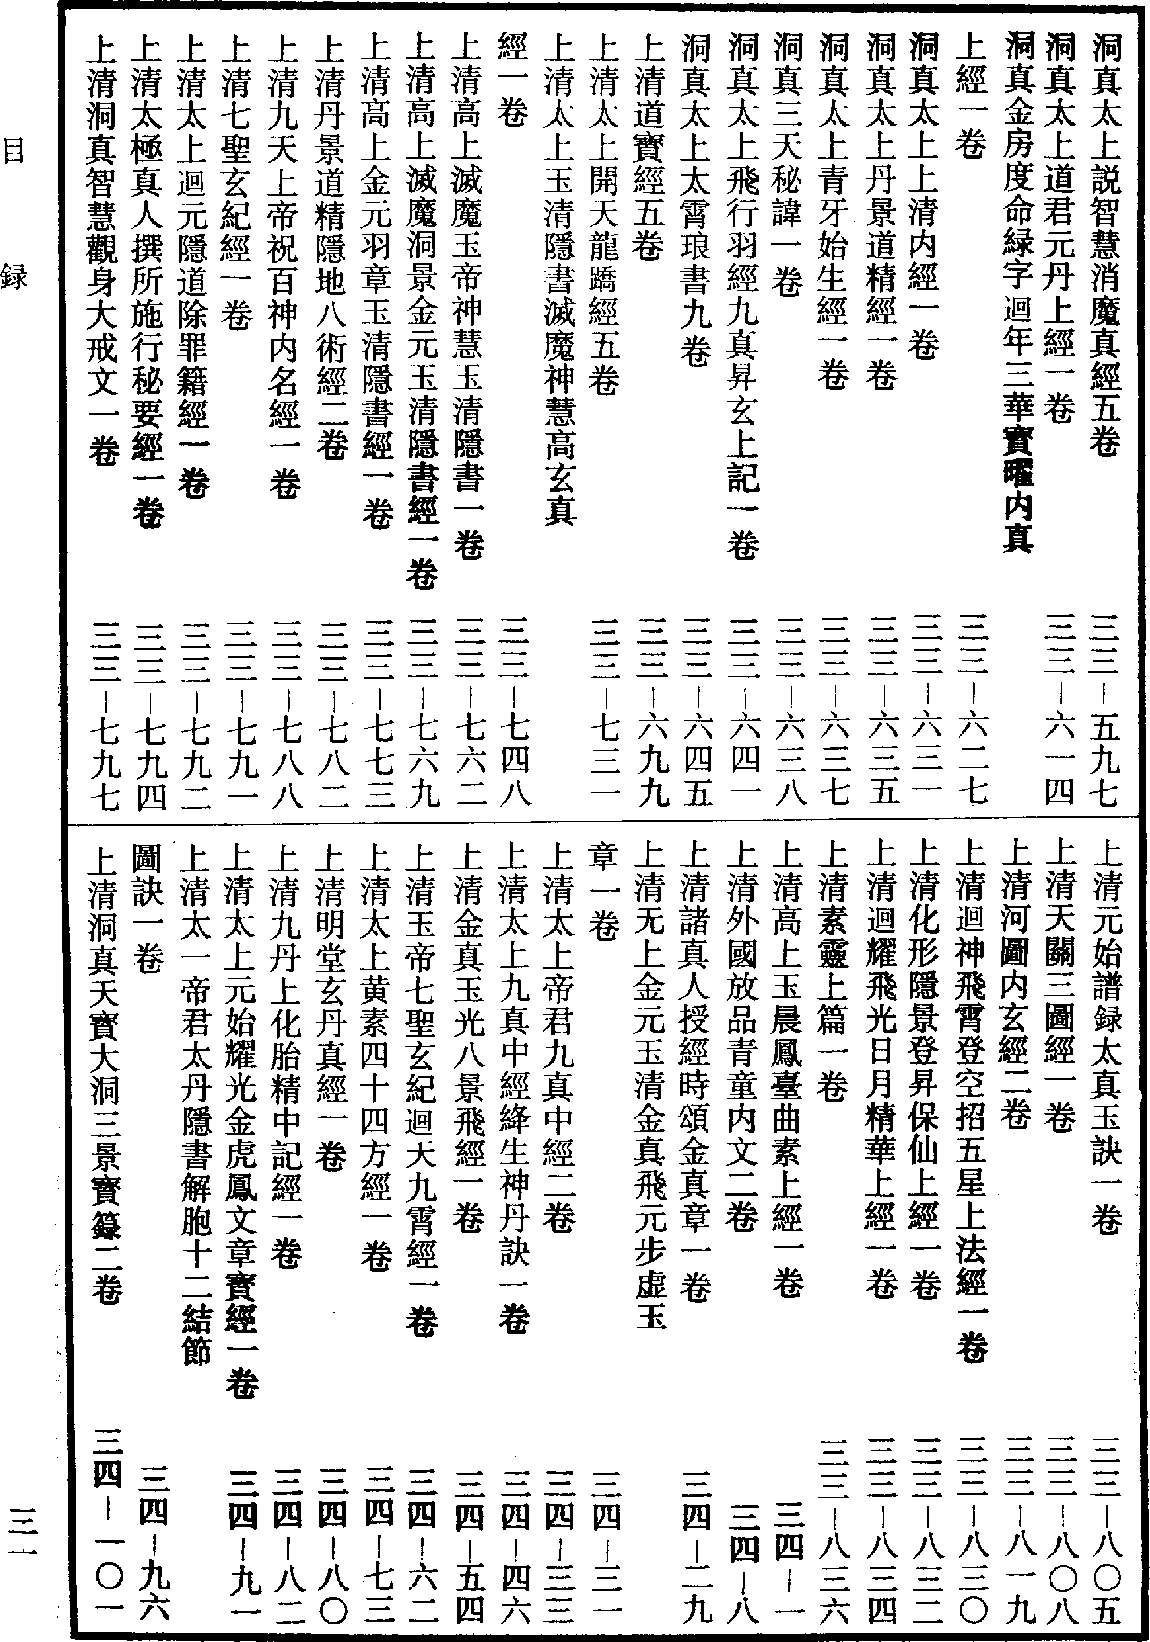 洞真太上説智慧消魔真經五卷 三三－五九七
洞真太上道君元丹上經一卷 三三－六一四
洞真金房度命緑字迴年三華寶曜内真
上經一卷 三三－六二七
洞真太上上清内經一卷 三三－六三一
洞真太上丹景道精經一卷 三三－六三五
洞真太上青牙始生經一卷 三三－六三七
洞真三天秘諱一卷 三三－六三八
洞真太上飛行羽經九真昇玄上記一卷 三三－六四一
洞真太上太霄琅書九卷 三三－六四五
上清道寶經五卷 三三－六九九
上清太上開天龍蹻經五卷 三三－七三一
上清太上玉清隱書滅魔神慧高玄真
經一卷 三三－七四八
上清高上滅魔玉帝神慧玉清隱書一卷 三三－七六二
上清高上滅魔洞景金元玉清隱書經一卷 三三－七六九
上清高上金元羽章玉清隱書經一卷 三三－七七三
上清丹景道精隱地八術經二卷 三三－七八二
上清九天上帝祝百神内名經一卷 三三－七八八
上清七聖玄紀經一卷 三三－七九一
上清太上迴元隱道除罪籍經一卷 三三－七九二
上清太極真人撰所施行秘要經一卷 三三－七九四
上清洞真智慧觀身大戒文一卷 三三－七九七
上清元始譜録太真玉訣一卷 三三－八〇五
上清天關三圖經一卷 三三－八〇八
上清河圖内玄經二卷 三三－八一九
上清迴神飛霄登空招五星上法經一卷 三三－八三〇
上清化形隱景登昇保仙上經一卷 三三－八三二
上清迴耀飛光日月精華上經一卷 三三－八三四
上清素靈上篇一卷 三三－八三六
上清高上玉晨鳳臺曲素上經一卷 三四－一
上清外國放品青童内文二卷 三四－八
上清諸真人授經時頌金真章一卷 三四－二九
上清无上金元玉清金真飛元步虚玉
章一卷 三四－三一
上清太上帝君九真中經二卷 三四－三三
上清太上九真中經絳生神丹訣一卷 三四－四六
上清金真玉光八景飛經一卷 三四－五四
上清玉帝七聖玄紀迴天九霄經一卷 三四－六二
上清太上黄素四十四方經一卷 三四－七三
上清明堂玄丹真經一卷 三四－八〇
上清九丹上化胎精中記經一卷 三四－八二
上清太上元始耀光金虎鳳文章寶經一卷 三四－九一
上清太一帝君太丹隱書解胞十二結節
圖訣一卷 三四－九六
上清洞真天寶大洞三景寶籙二卷 三四－一〇一
目録
三一